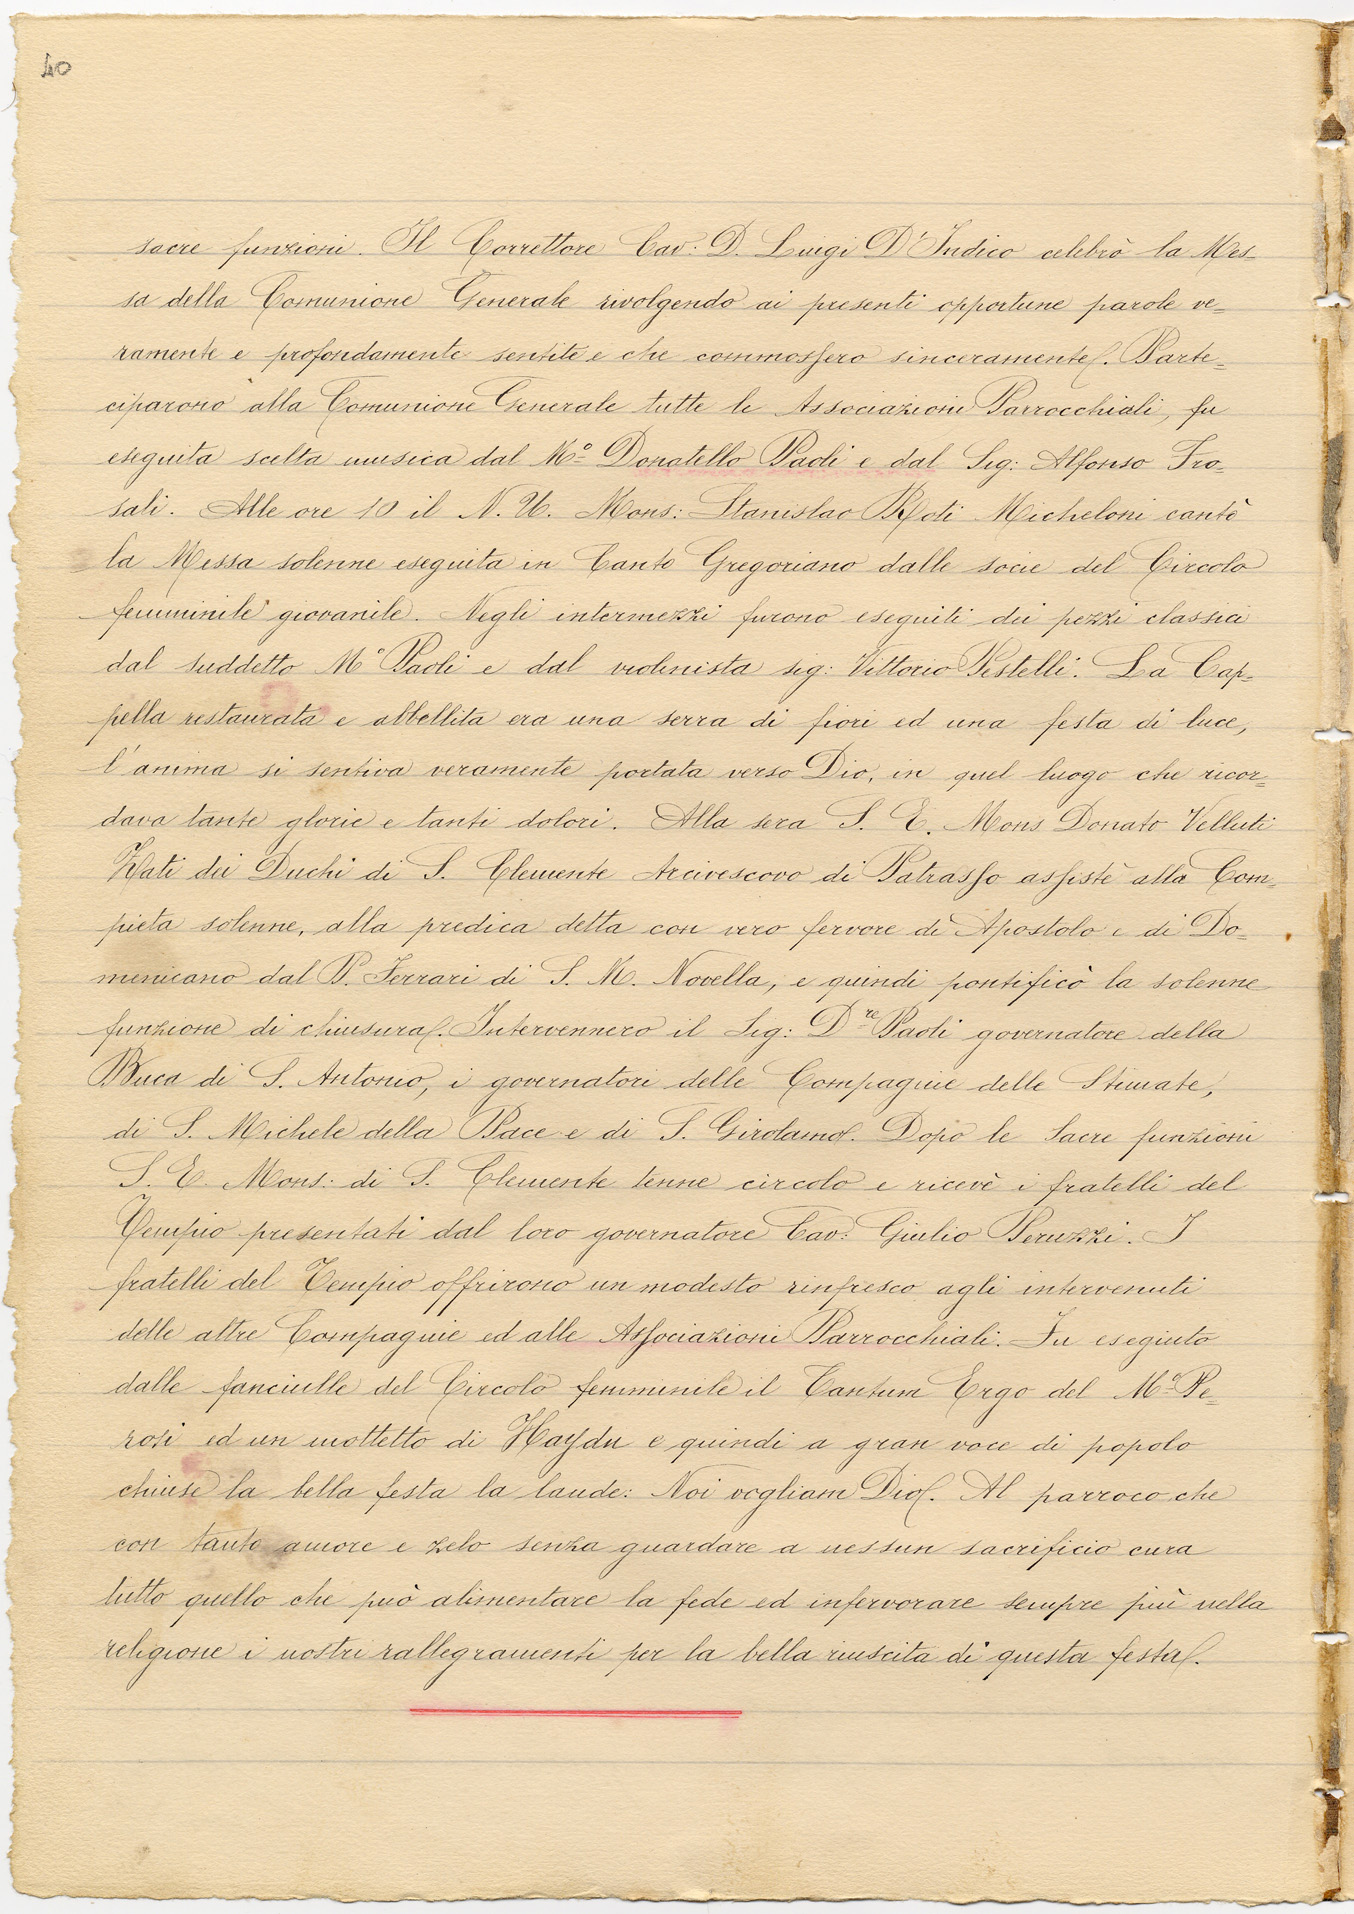 40
sacre funzioni. Il Correttore Cav: D. Luigi D'Indico celebrò la Mes=
sa della Comunione Generale rivolgendo ai presenti opportune parole ve=
ramente e profondamente sentite e che commossero sinceramente. Parte=
ciparono alla Comunione Generale tutte le Associazioni Parrocchiali, fu
eseguita scelta musica dal Mº Donatello Paoli e dal Sig: Alfonso Fro=
sali. Alle ore 10 il N. U. Mons: Stanislao Roti Micheloni cantò
la Messa solenne eseguita in Canto Gregoriano dalle socie del Circolo
femminile giovanile. Negli intermezzi furono eseguiti dei pezzi classici
dal suddetto Mº Paoli e dal violinista sig: Vittorio Pestelli. La Cap=
pella restaurata e abbellita era una serra di fiori ed una festa di luce,
l'anima si sentiva veramente portata verso Dio, in quel luogo che ricor=
dava tante glorie e tanti dolori. Alla sera S. E. Mons Donato Velluti
Zati dei Duchi di S. Clemente Arcivescovo di Patrasso assistè alla Com=
pieta solenne, alla predica detta con vero fervore di Apostolo e di Do=
menicano dal P. Ferrari di S. M. Novella, e quindi pontificò la solenne
funzione di chiusura. Intervennero il Sig: Dre Paoli governatore della
Buca di S. Antonio, i governatori delle Compagnie delle Stimate,
di S. Michele della Pace e di S. Girolamo. Dopo le Sacre funzioni
S. E. Mons: di S. Clemente tenne circolo e ricevè i fratelli del
Tempio presentati dal loro governatore Cav: Giulio Peruzzi. I
fratelli del Tempio offrirono un modesto rinfresco agli intervenuti
delle altre Compagnie ed alle Associazioni Parrocchiali. Fu eseguito
dalle fanciulle del Circolo femminile il Tantum Ergo del Mº Pe=
rosi ed un mottetto di Haydn e quindi a gran voce di popolo
chiuse la bella festa la laude: Noi vogliam Dio. Al parroco che
con tanto amore e zelo senza guardare a nessun sacrificio cura
tutto quello che può alimentare la fede ed infervorare sempre più nella
religione i nostri rallegramenti per la bella riuscita di questa festa.